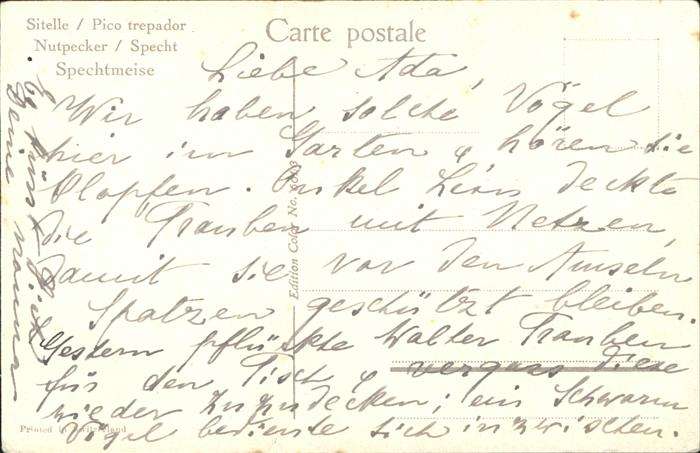 Sitelle / Pico trepador
Nutpecker / Specht
Spechtmeise
Carte postale
Liebe Ada,
Wir haben solche Vögel
hier im Garten & hören sie
klopfen. Onkel Léon deckte
die Trauben mit Netzen,
damit sie vor den Amseln
Spatzen geschützt bleiben.
Gestern pflückte Walter Trauben
für den Tisch, & vergass diese
wieder zuzudecken; ein Schwarm
Vögel bediente sich inzwischen.
Es küsst Dich
Deine Mamma
Edition Color No.
Printed in Switzerland